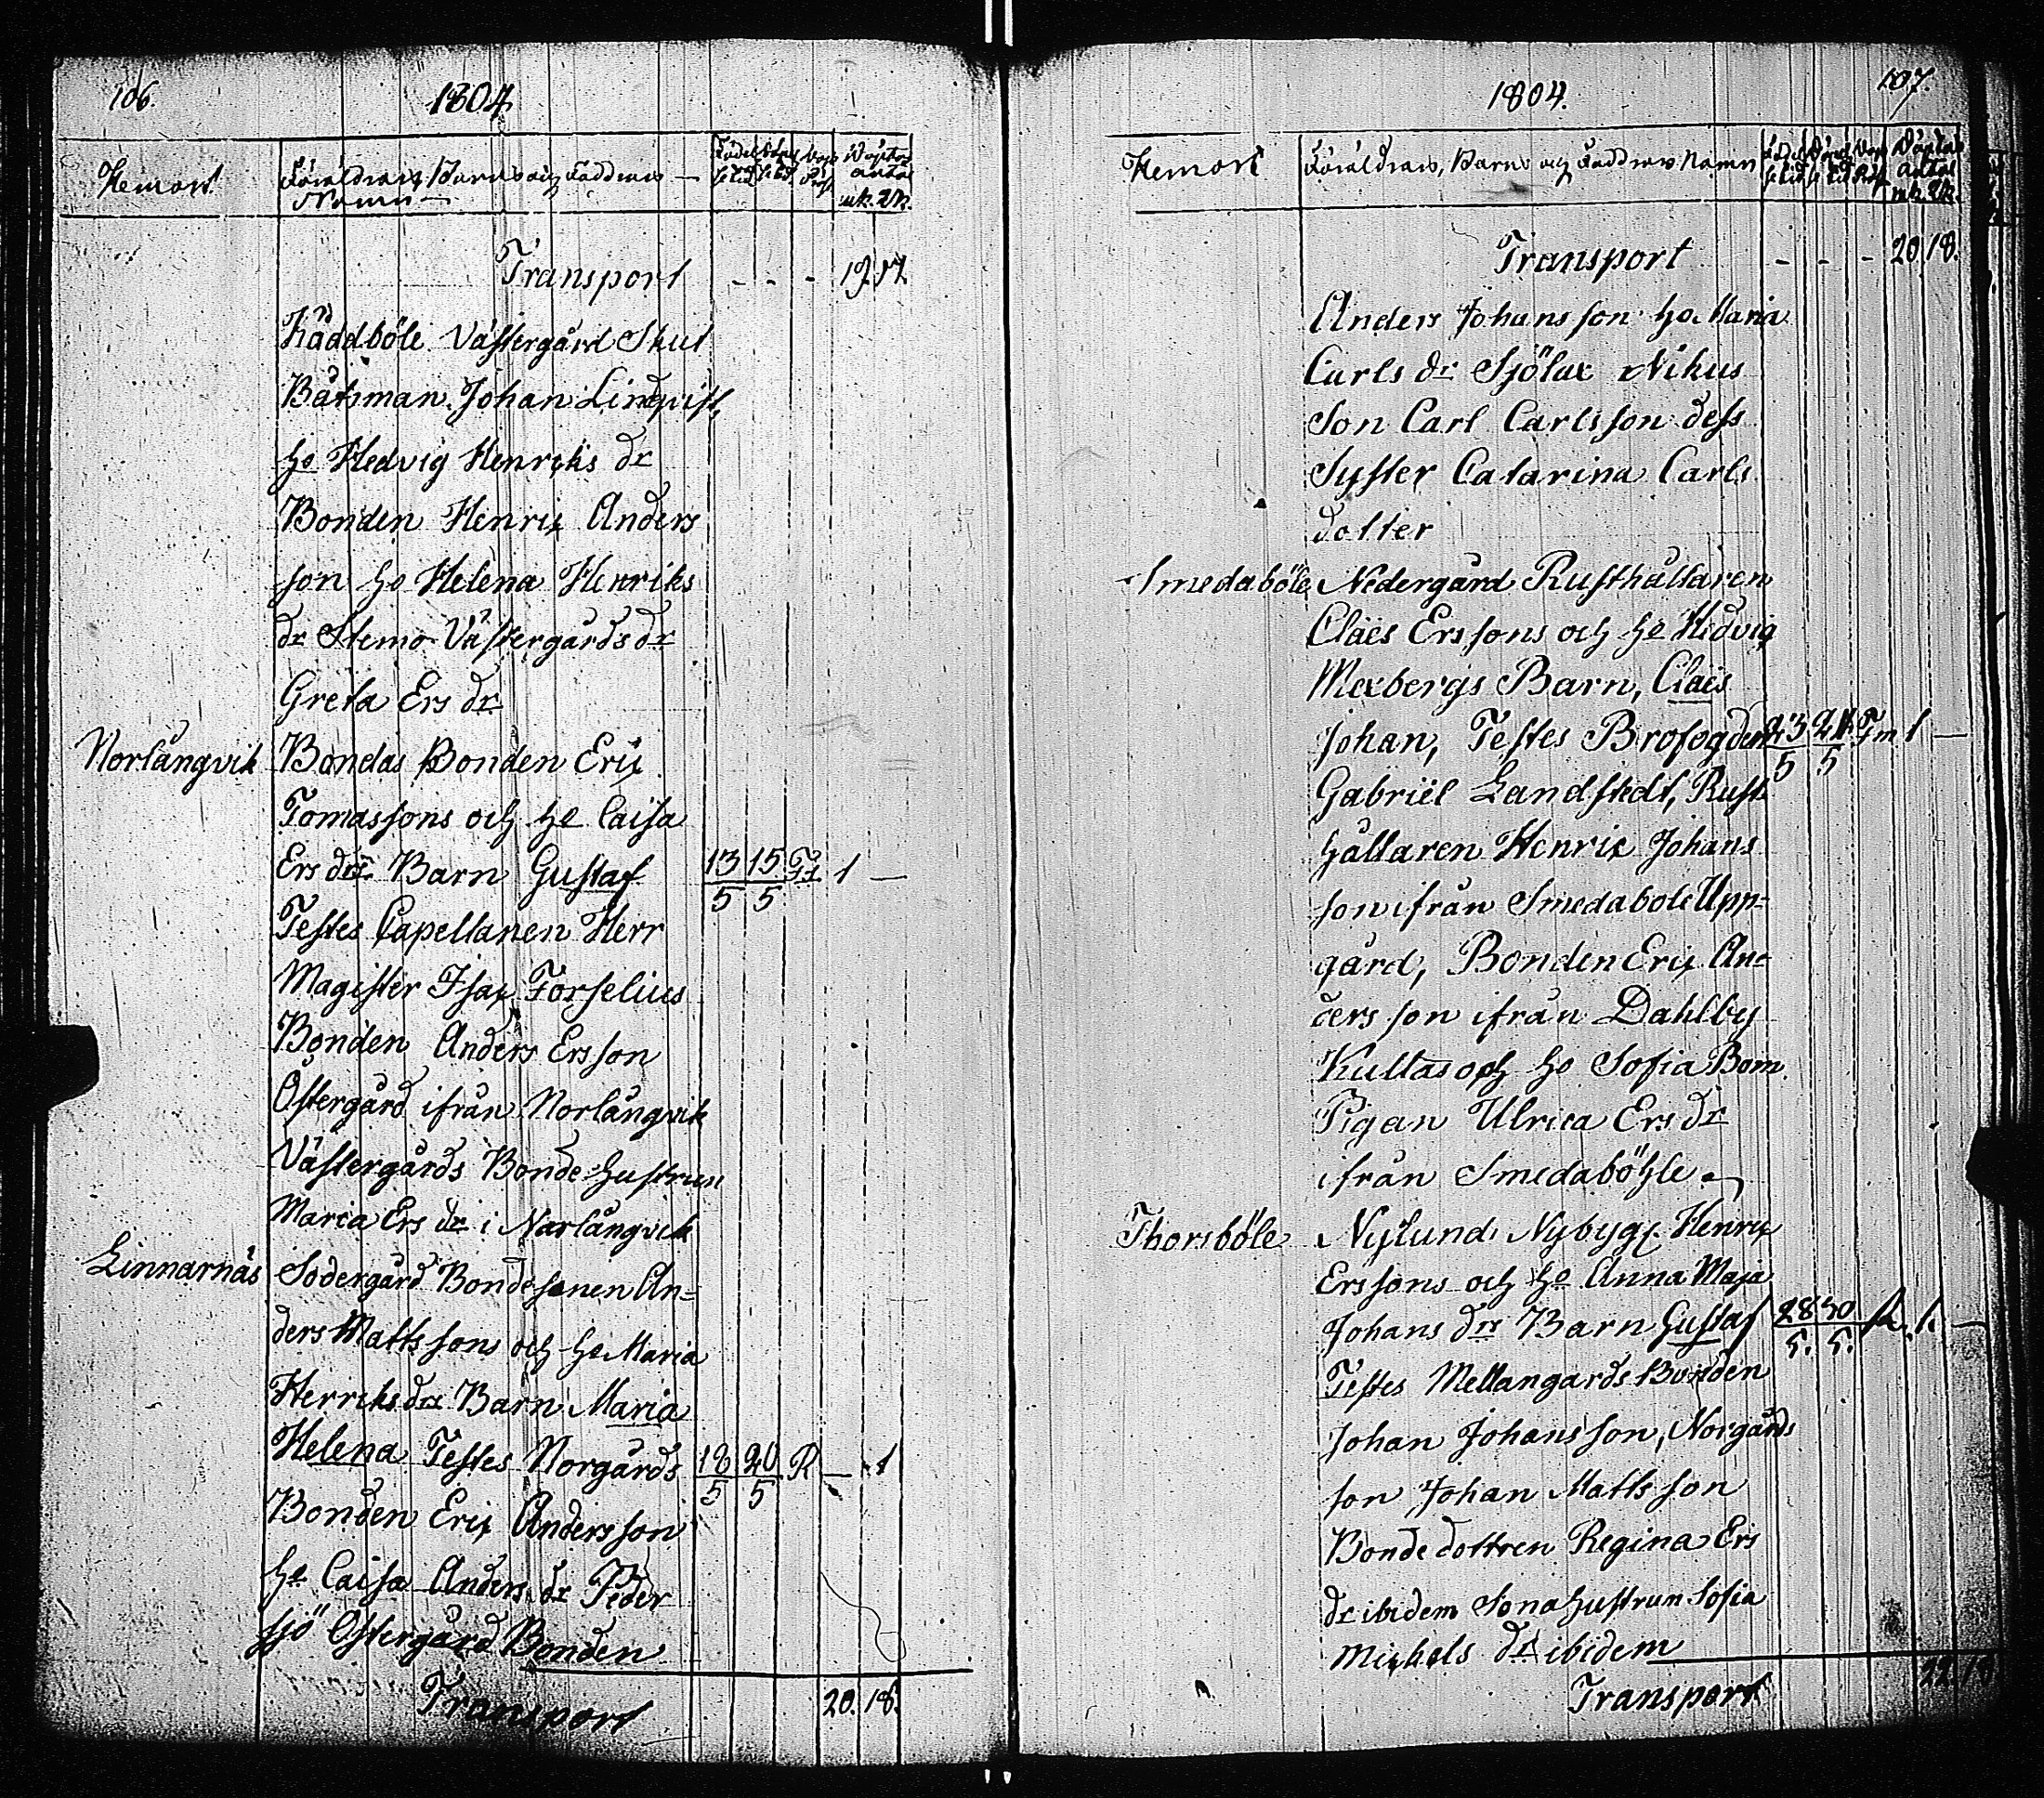 106.
1804
Hemort.
Föräldrars, Barns och Faddrars
Namn
Födelse tid
Döpelse tid
Döptas antal
mk. Qk.
Transport - - - 19. 17.
Råddböle Västergård Skut
Båtsman Johan Lindqvist,
ho Hedvig Henriks dr
Bonden Henric Anders
son ho Helena Henriks
dr Stemo Västergårds dr
Greta Ers dr
Norlångvik Bondas Bonden Eric
Tomassons och ho Caisa
Ers drs Barn Gustaf 13/5 15/5 1 —
Testes Capellanen Herr
Magister Isac Forselius
Bonden Anders Ersson
Östergård ifrån Norlångvik
Västergårds Bonde hustrun
Maria Ers dr i Norlångvik
Linnarnäs Södergård Bondesonen An=
ders Mattssons och ho Maria
Henriks drs Barn Maria
Helena Testes Norgårds 18/5 20/5 R — 1
Bonden Eric Andersson
ho Caisa Anders dr Peder
sjö Östergård Bonden
Transport 20. 18.
107.
1804.
Hemort
Föräldrars, Barns och Faddrars Namn
Döptas antal
mk. Qk.
Transport - - - 20. 18.
Anders Johansson ho Maria
Carls dr Sjölax Nikus
Son Carl Carlsson dess
Syster Catarina Carls
dotter
Smedaböle Nedergård Rusthållaren
Claës Erssons och ho Hedvig
Mexbergs Barn, Claës
Johan, Testes Brofogden 23/5 24/5 Fm 1 —
Gabriël Landstedt, Rust
hållaren Henric Johans
son ifrån Smedabole Upp=
gård, Bonden Eric An=
dersson ifrån Dahlby
Kullas och ho Sofia Bom.
Pigan Ulrica Ers dr
ifrån Smedaböhle.
Thorsböle Nylund Nybygg. Henric
Erssons och ho Anna Maja
Johans drs Barn Gustaf 28/5. 30/5. R. 1. —
Testes Mellangårds Bonden
Johan Johansson, Norgårds
son Johan Mattsson
Bondedottren Regina Ers
dr ibidem Sonahustrun Sofia
Michels dr ibidem
Transport 22.